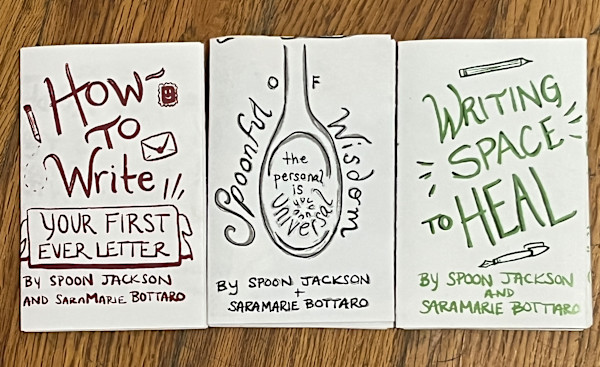 HOW
TO
Write
YOUR FIRST
EVER LETTER
BY SPOON JACKSON
AND SARAMARIE BOTTARO
Spoonful
OF
Wisdom
the
personal
is
universal
BY SPOON JACKSON
+
SARAMARIE BOTTARO
WRITING
SPACE
TO HEAL
BY SPOON JACKSON
AND
SARAMARIE BOTTARO